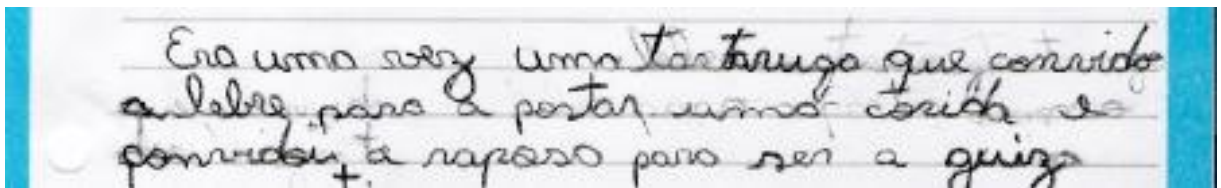 Era uma vez uma tartaruga que convido
a lebre para a postar uma corida e
convidou a raposo para ser a guiza